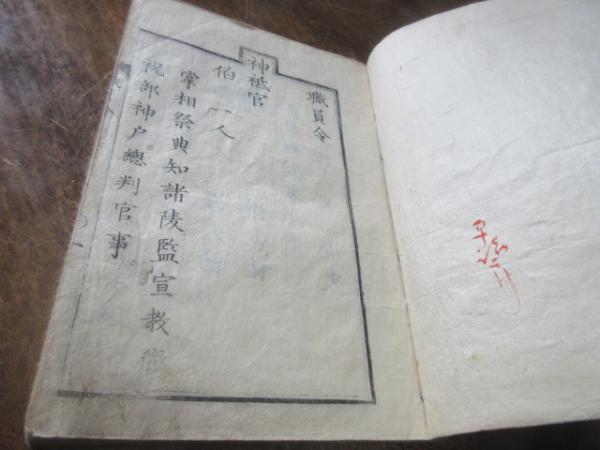 職員令
神祇官
伯一人
掌相祭典知諸陵監宣教管
祝部神戸。總判官事。